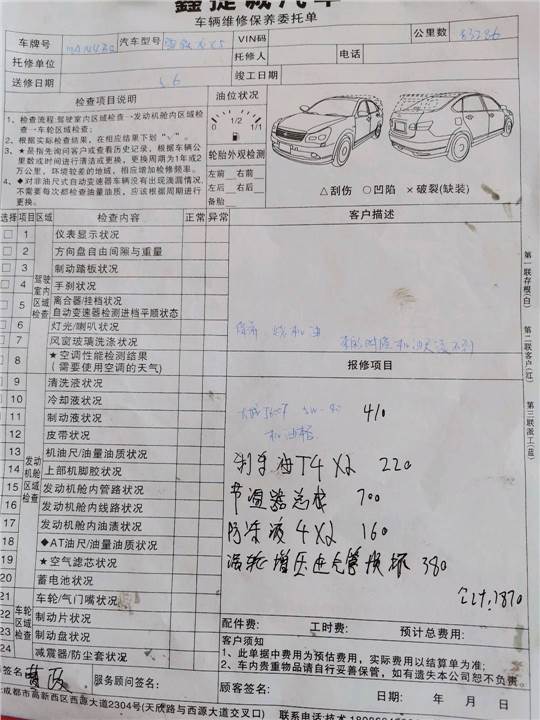 鑫捷诚汽车
车辆维修保养委托单
车牌号 汽车型号 VIN码 公里数 83286
托修单位 托修人 电话
送修日期 5.6 竣工日期
检查项目说明 油位状况
1、检查流程:驾驶室内区域检查→发动机舱内区域检查→车轮区域检查;
2、根据实际检查结果,在相应结果下划“√”。
3、★是指先询问客户或查看历史记录,根据车辆公里数或时间进行清洁或更换,更换周期为1年或2万公里,环境较差的地域,相应增加检修频率。
4、◆对非油尺式自动变速器车辆没有出现泄漏情况,不需要每次都检查油量油质,应该根据周期进行更换。
0 1/2 1/1
轮胎外观检测
左前 右前
左后 右后
备胎
△刮伤 ○凹陷 ×破裂(缺装)
选择 项目 区域 检查内容 正常 异常 客户描述
驾驶室内区域检查
□ 1 仪表显示状况
□ 2 方向盘自由间隙与重量
□ 3 制动踏板状况
□ 4 手刹状况
□ 5 离合器/挂档状况
自动变速器检测进档平顺状态
□ 6 灯光/喇叭状况
□ 7 风窗玻璃洗涤状况
□ 8 ★空调性能检测结果
(需要使用空调的天气)
发动机舱区域检查
□ 9 清洗液状况
10 冷却液状况
11 制动液状况
12 皮带状况
13 机油尺/油量油质状况
14 上部机脚胶状况
15 发动机舱内管路状况
16 发动机舱内线路状况
17 发动机舱内油渍状况
18 ◆AT油尺/油量油质状况
19 ★空气滤芯状况
20 蓄电池状况
车轮区域检查
21 车轮/气门嘴状况
22 制动片状况
23 制动盘状况
24 减震器/防尘套状况
烧机油
报修项目
5W-40 410
机油格
刹车油T4 X2 220
节温器总成 700
防冻液 4X2 160
涡轮增压进气管损坏 380
合计:1870
配件费: 工时费: 预计总费用:
客户须知
1、此单据中费用为预估费用,实际费用以结算单为准;
2、车内贵重物品请自行妥善保管,如有遗失本公司恕不负责。
签名: 服务顾问签名: 顾客签名: 日期: 年 月 日
成都市高新西区西源大道2304号(天欣路与西源大道交叉口) 联系电话:技术
第一联存根(白)
第二联客户(红)
第三联派工(蓝)